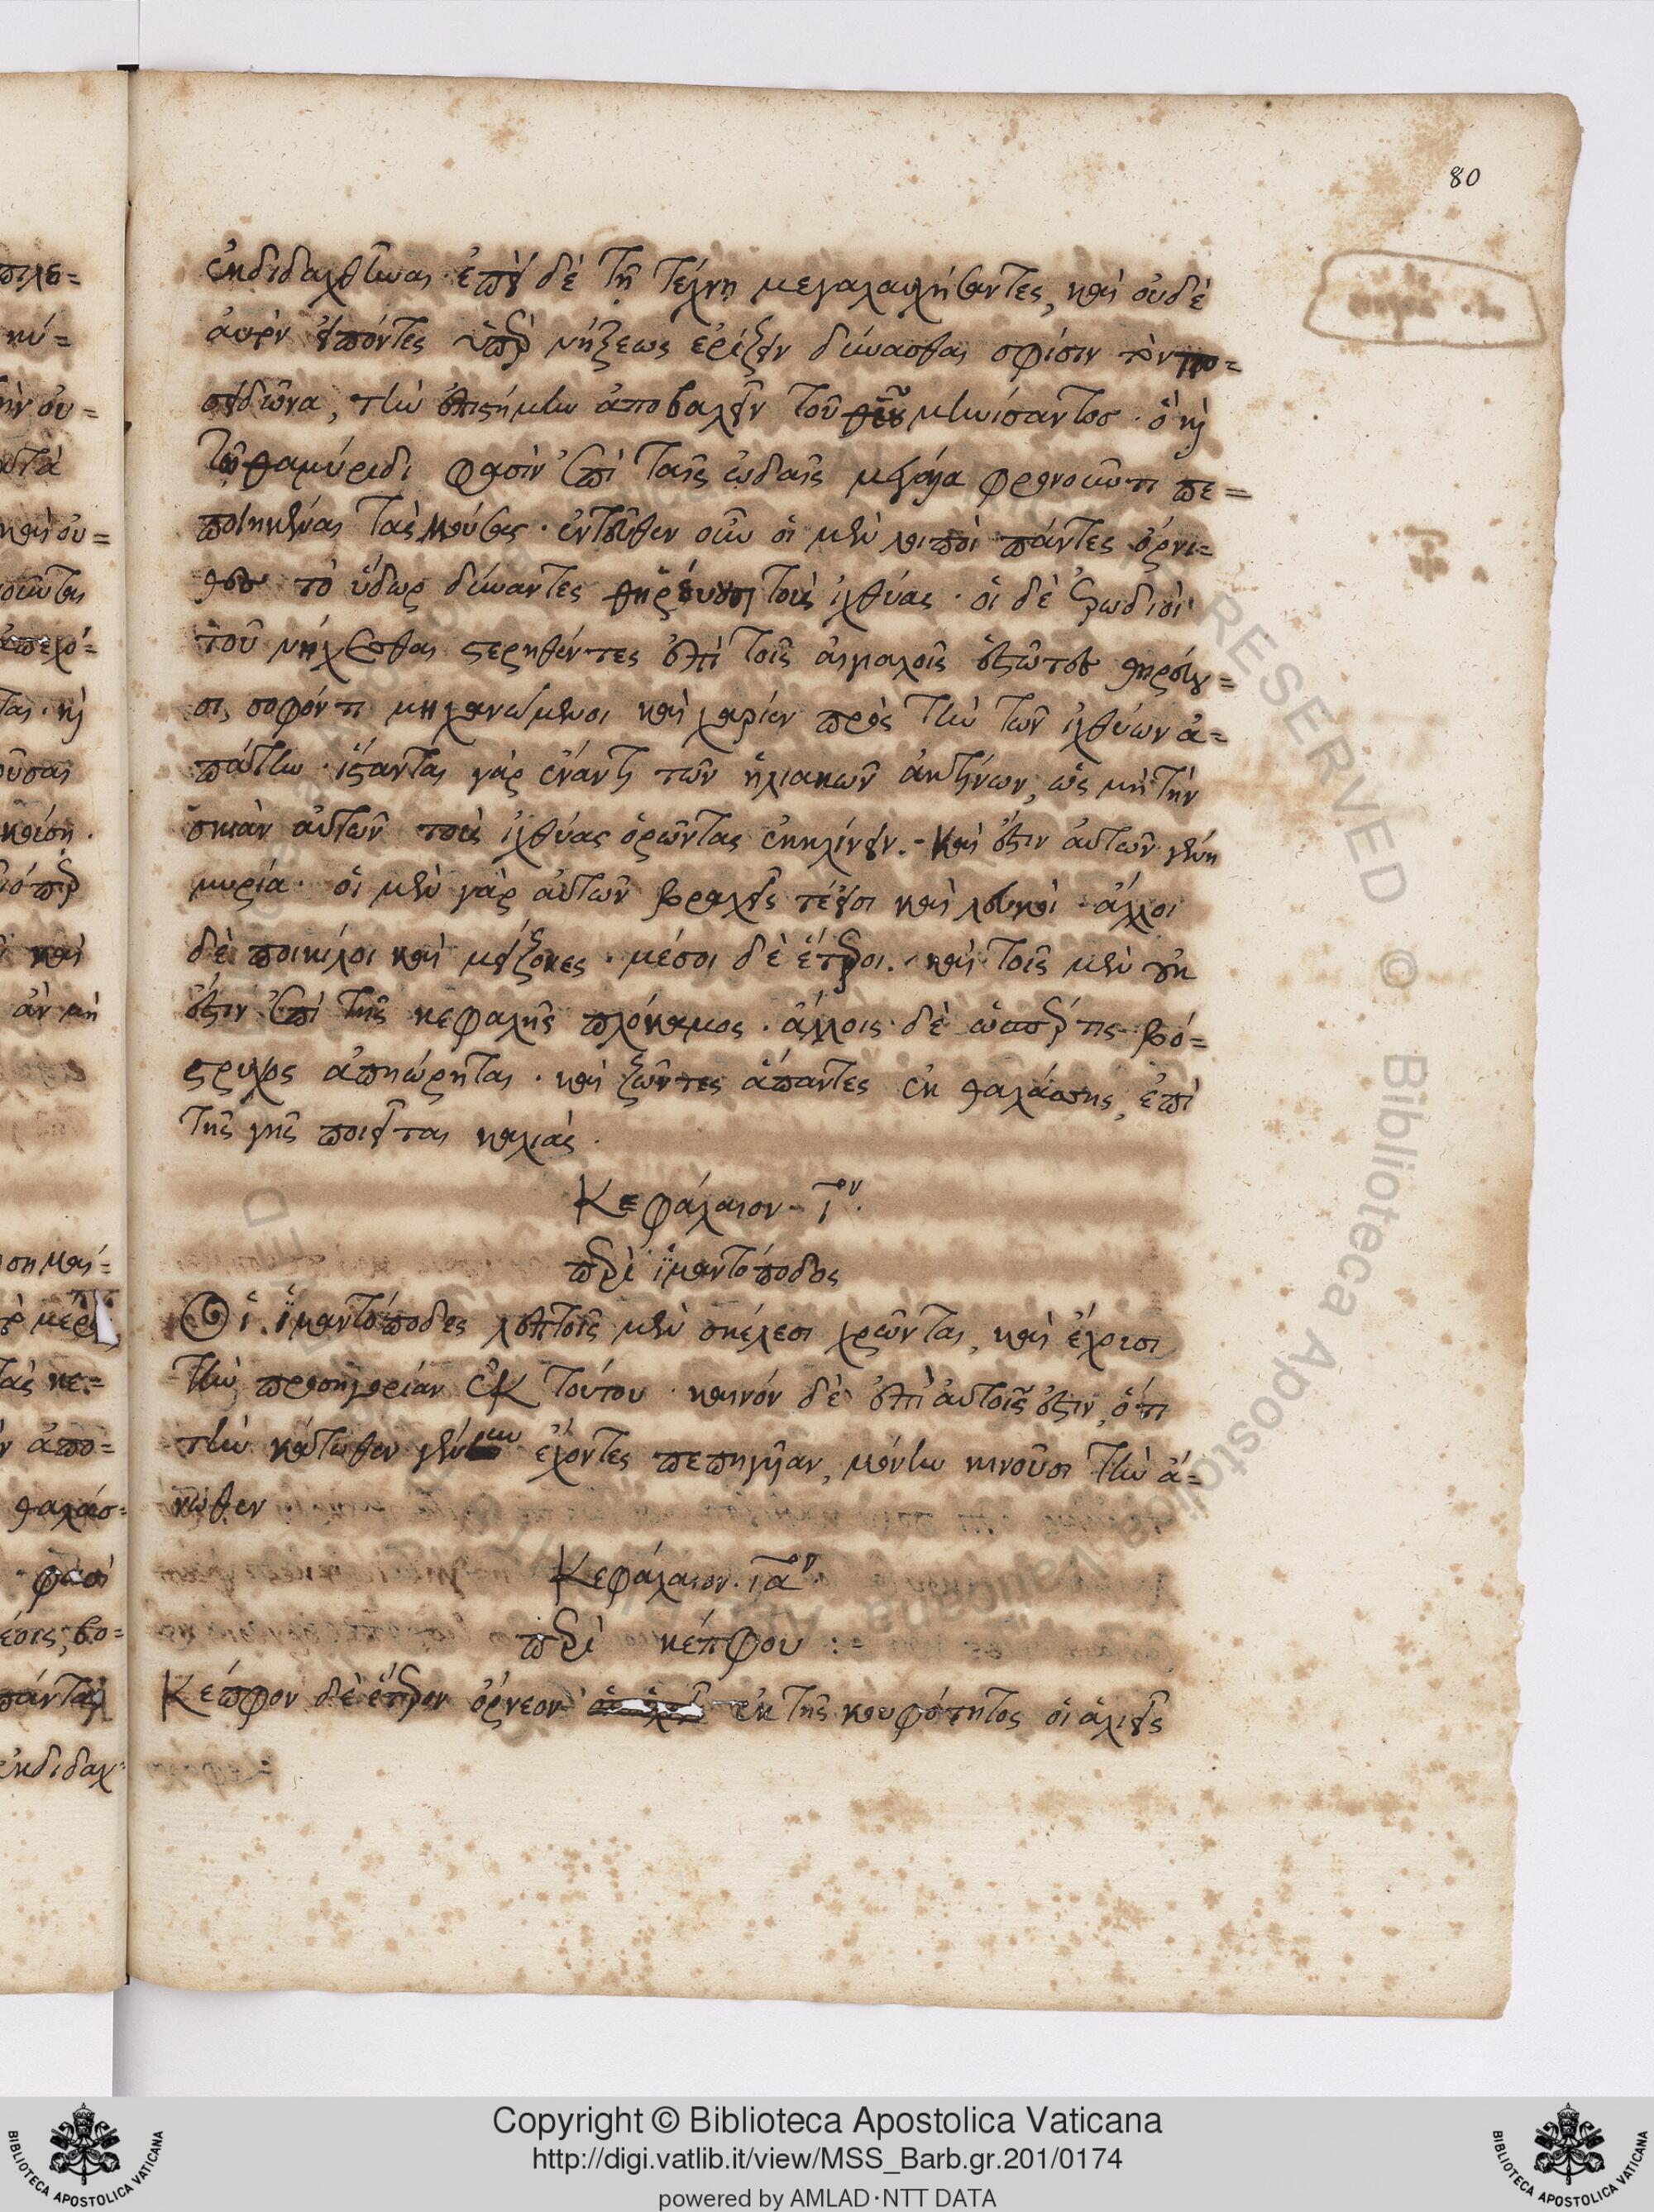 80
ἐκδιδαχθῆναι. ἐπεὶ δὲ τῇ τέχνῃ μεγαλαυχήσαντες, καὶ οὐδὲ
ἀκρὶν εἰπόντες ὑπὲρ νήξεως ἐρίζειν δύνασθαι σφίσιν τὸν πο=
σειδῶνα, τὴν ἐπιστήμην ἀποβαλεῖν τοῦ θεοῦ μηνίσαντος. ὃ καὶ
τῷ θαμύριδι φασὶν ἐπὶ ταῖς ᾠδαῖς μεγάλα φρονοῦντι πε=
ποιηκέναι τὰς μούσας. ἐντεῦθεν οὖν οἱ μὲν λοιποὶ πάντες ὄρνι=
θες τὸ ὕδωρ δύναντες θηρεύουσι τοὺς ἰχθύας. οἱ δὲ ἐρωδιοὶ
τοῦ νήχεσθαι στερηθέντες ἐπὶ τοῖς αἰγιαλοῖς ἑστῶτες θηρεύου=
σι, σοφόν τι μηχανώμενοι καὶ χαρίεν πρὸς τὴν τῶν ἰχθύων ἀ=
πάτην. ἵστανται γὰρ ἐναντί τῶν ἡλιακῶν ἀκτίνων, ὡς μὴ τὴν
σκιὰν αὐτῶν τοὺς ἰχθύας ὁρῶντας ἐκκλίνειν. καὶ ἔστιν αὐτῶν γένη
μυρία. οἱ μὲν γὰρ αὐτῶν βραχεῖς τέ εἰσι καὶ λευκοί. ἄλλοι
δὲ ποικίλοι καὶ μείζονες. μέσοι δὲ ἕτεροι. καὶ τοῖς μὲν οὐκ
ἔστιν ἐπὶ τῆς κεφαλῆς πλόκαμος. ἄλλοις δὲ ὥσπερ τις βό=
στρυχος ἀπῃώρηται. καὶ ζῶντες ἅπαντες ἐκ θαλάσσης, ἐπὶ
τῆς γῆς ποιεῖται καλιάς.
Κεφάλαιον ι̅ον.
περὶ ἱμαντόποδος
Οἱ ἱμαντόποδες λεπτοῖς μὲν σκέλεσι χρῶνται, καὶ ἔχουσι
τὴν προσηγορίαν ἐκ τούτου. καινὸν δὲ ἐπὶ αὐτοῖς ἐστιν, ὅτι
τὴν κάτωθεν γένυν ἔχοντες πεπηγῆαν, μόνην κινοῦσι τὴν ἄ=
νωθεν
Κεφάλαιον. ια̅ον
περὶ κέπφου :-
Κέπφον δὲ ἕτερον ὄρνεον ἐκ τῆς κουφότητος οἱ ἁλιεῖς
Copyright © Biblioteca Apostolica Vaticana
http://digi.vatlib.it/view/MSS_Barb.gr.201/0174
powered by AMLAD·NTT DATA